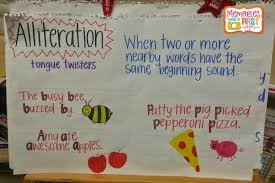 Alliteration
tongue twisters
When two or more
nearby words have the
same beginning sound.
The busy bee
buzzed by
Patty the pig picked
pepperoni pizza.
Amy ate
awesome apples.
Memories
FIRST